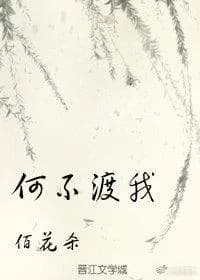 何不渡我
佰花杀
晋江文学城